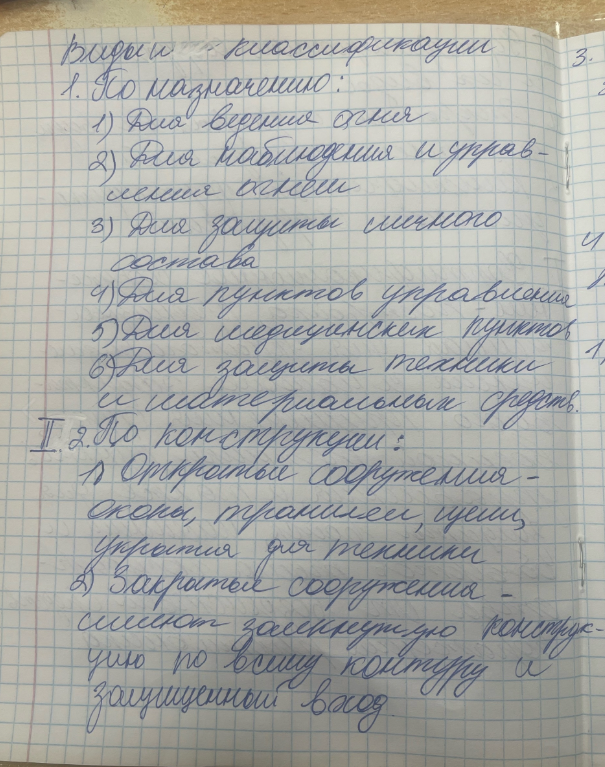 Виды и классификации
1. По назначению:
1) Для ведения огня
2) Для наблюдения и управ-
ления огнем
3) Для защиты личного
состава
4) Для пунктов управления
5) Для медицинских пунктов
6) Для защиты техники
и материальных средств.
II 2. По конструкции:
1) Открытые сооружения -
окопы, траншеи, щели,
укрытия для техники
2) Закрытые сооружения -
имеют замкнутую конструк-
цию по всему контуру и
защищенный вход.
3.